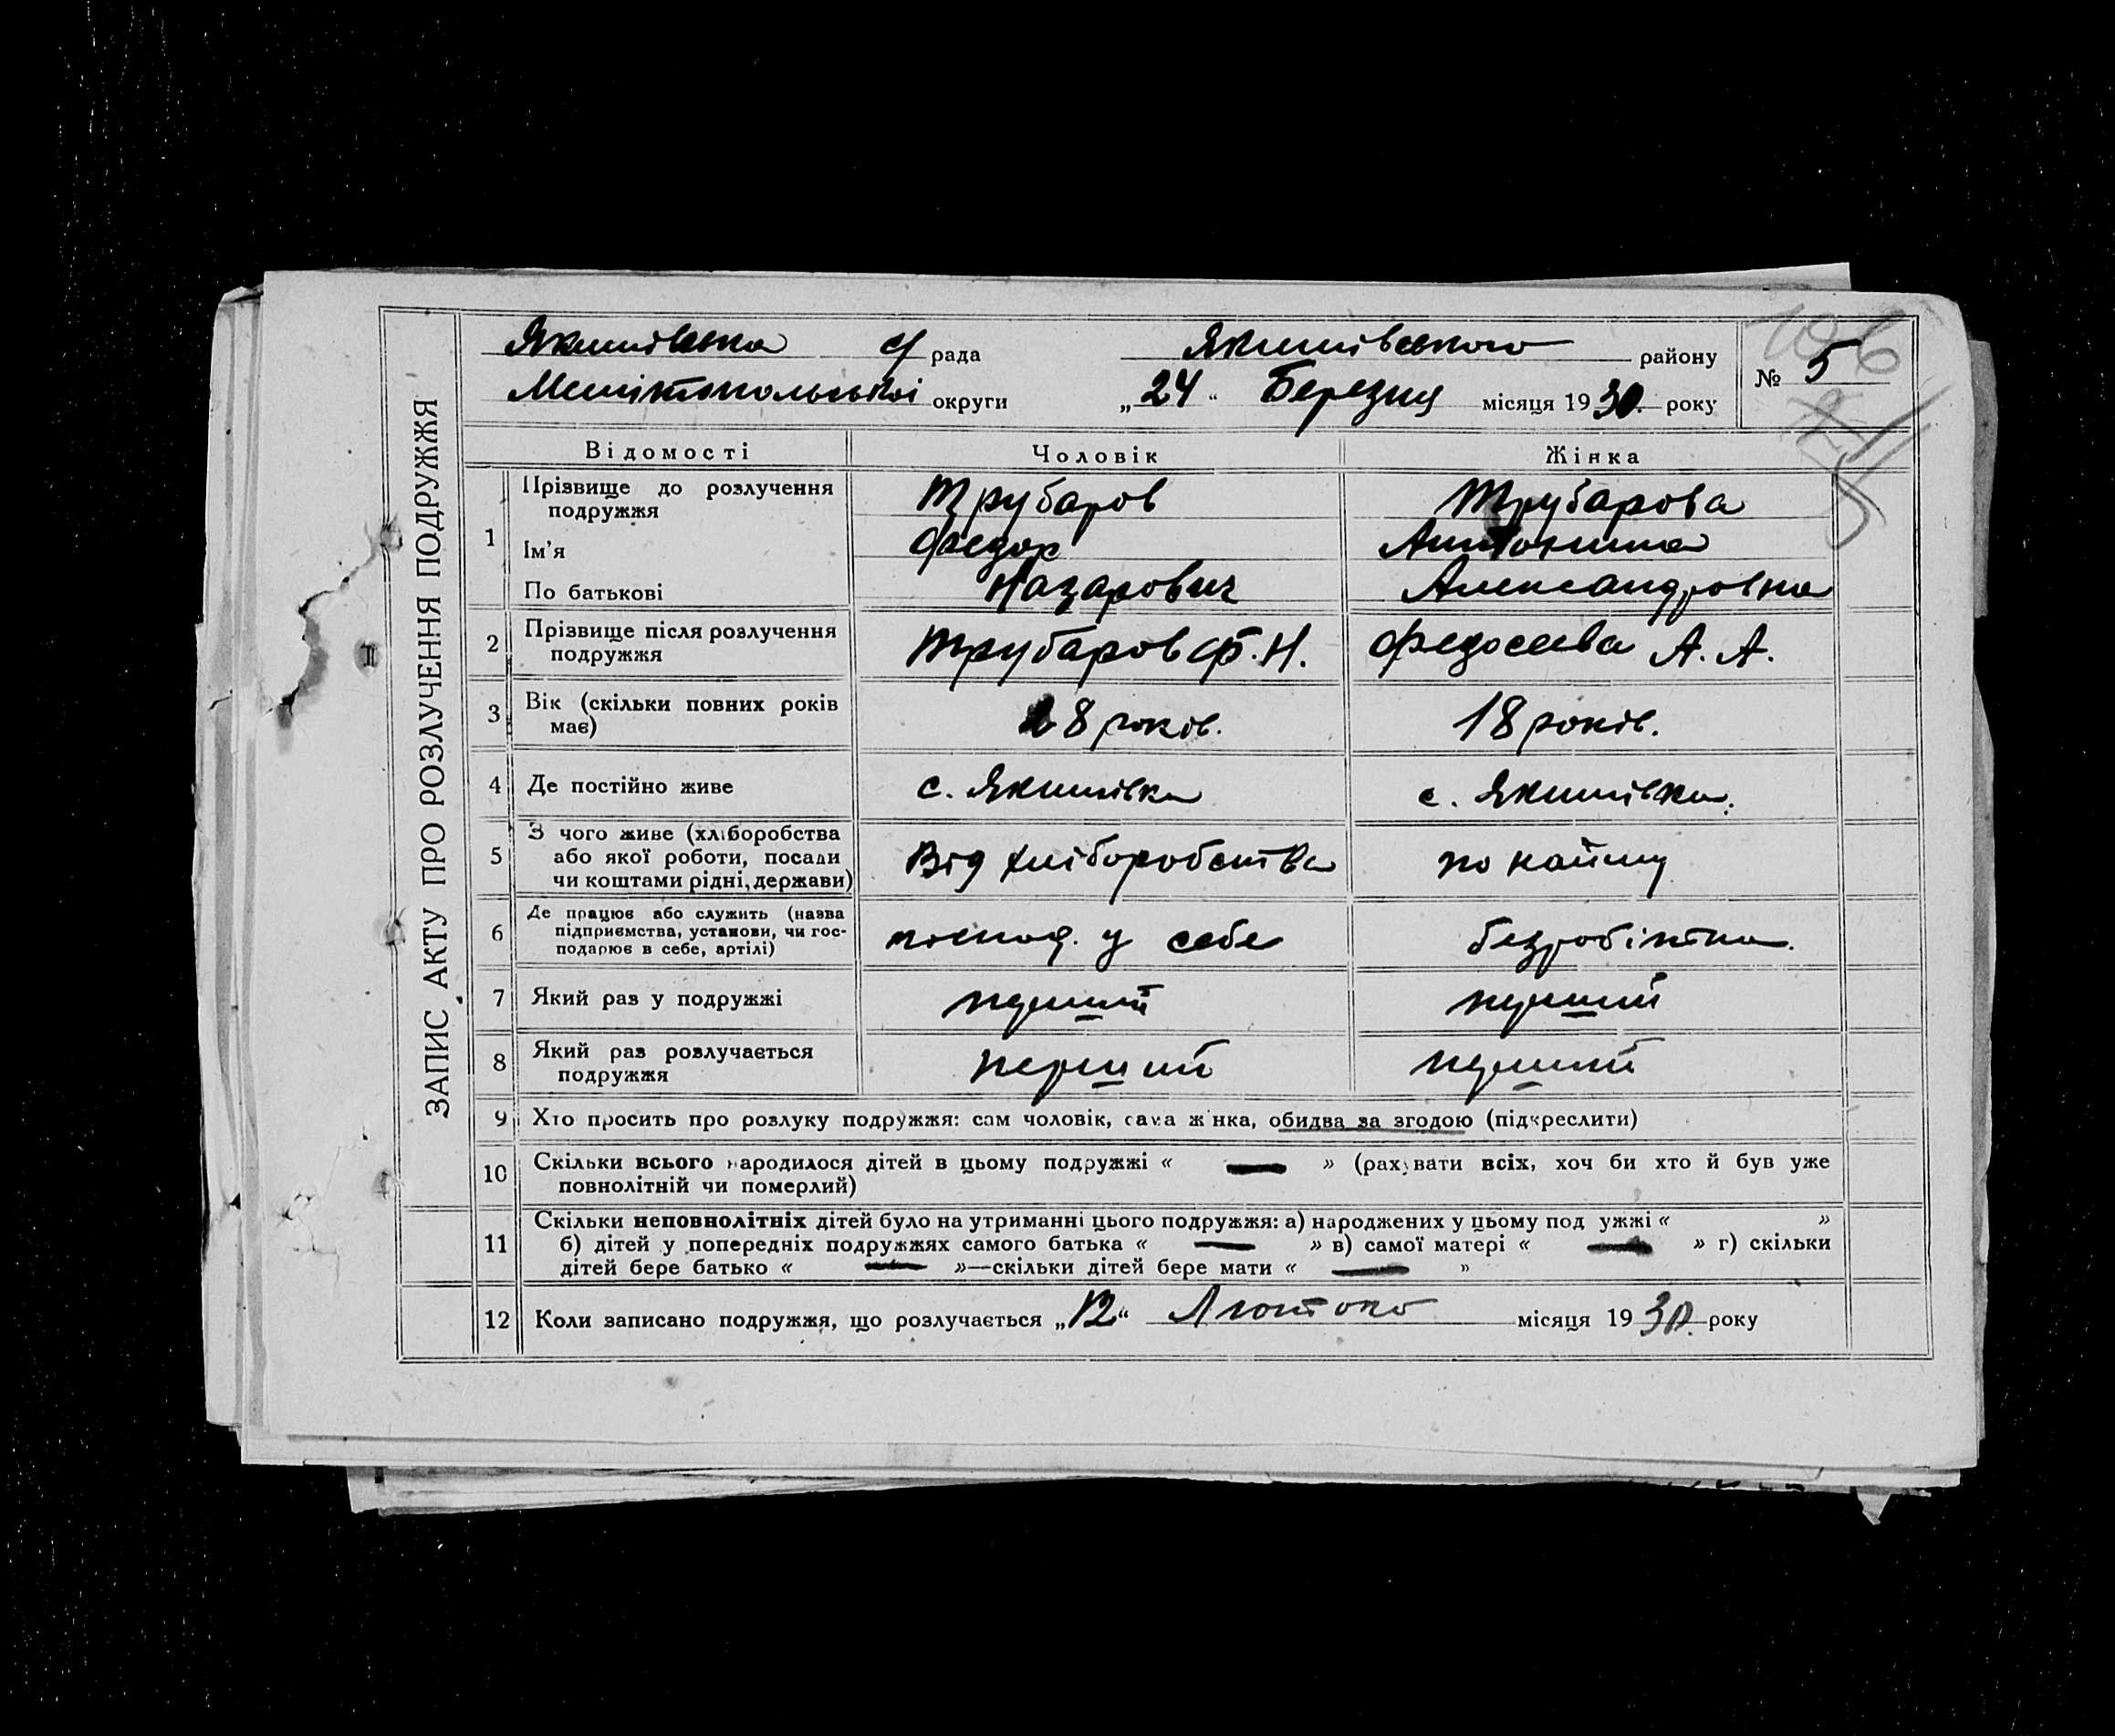 ЗАПИС АКТУ ПРО РОЗЛУЧЕННЯ ПОДРУЖЖЯ
Якимівська с/рада Якимівського району
№ 5
Мелітопольської округи „24“ Березня місяця 1930. року
Відомості Чоловік Жінка
1 Прізвище до розлучення подружжя Трубаров Трубарова
Ім'я Федор Антонина
По батькові Назарович Александровна
2 Прізвище після розлучення Трубаров Ф. Н. Федосеева А. А.
подружжя
3 Вік (скільки повних років 28 років. 18 років.
має)
4 Де постійно живе с. Якимівка с. Якимівка.
5 З чого живе (хліборобства
або якої роботи, посади Від хліборобства по найму
чи коштами рідні, держави)
6 Де працює або служить (назва
підприємства, установи, чи гос- господ. у себе безробітна.
подарює в себе, артілі)
7 Який раз у подружжі перший перший
8 Який раз розлучається перший перший
подружжя
9 Хто просить про розлуку подружжя: сам чоловік, сама жінка, обидва за згодою (підкреслити)
10 Скільки всього народилося дітей в цьому подружжі « — » (рахувати всіх, хоч би хто й був уже
повнолітній чи померлий)
11 Скільки неповнолітніх дітей було на утриманні цього подружжя: а) народжених у цьому подружжі « »
б) дітей у попередніх подружжях самого батька « — » в) самої матері « — » г) скільки
дітей бере батько « — »—скільки дітей бере мати « — »
12 Коли записано подружжя, що розлучається „12“ Лютого місяця 1930. року